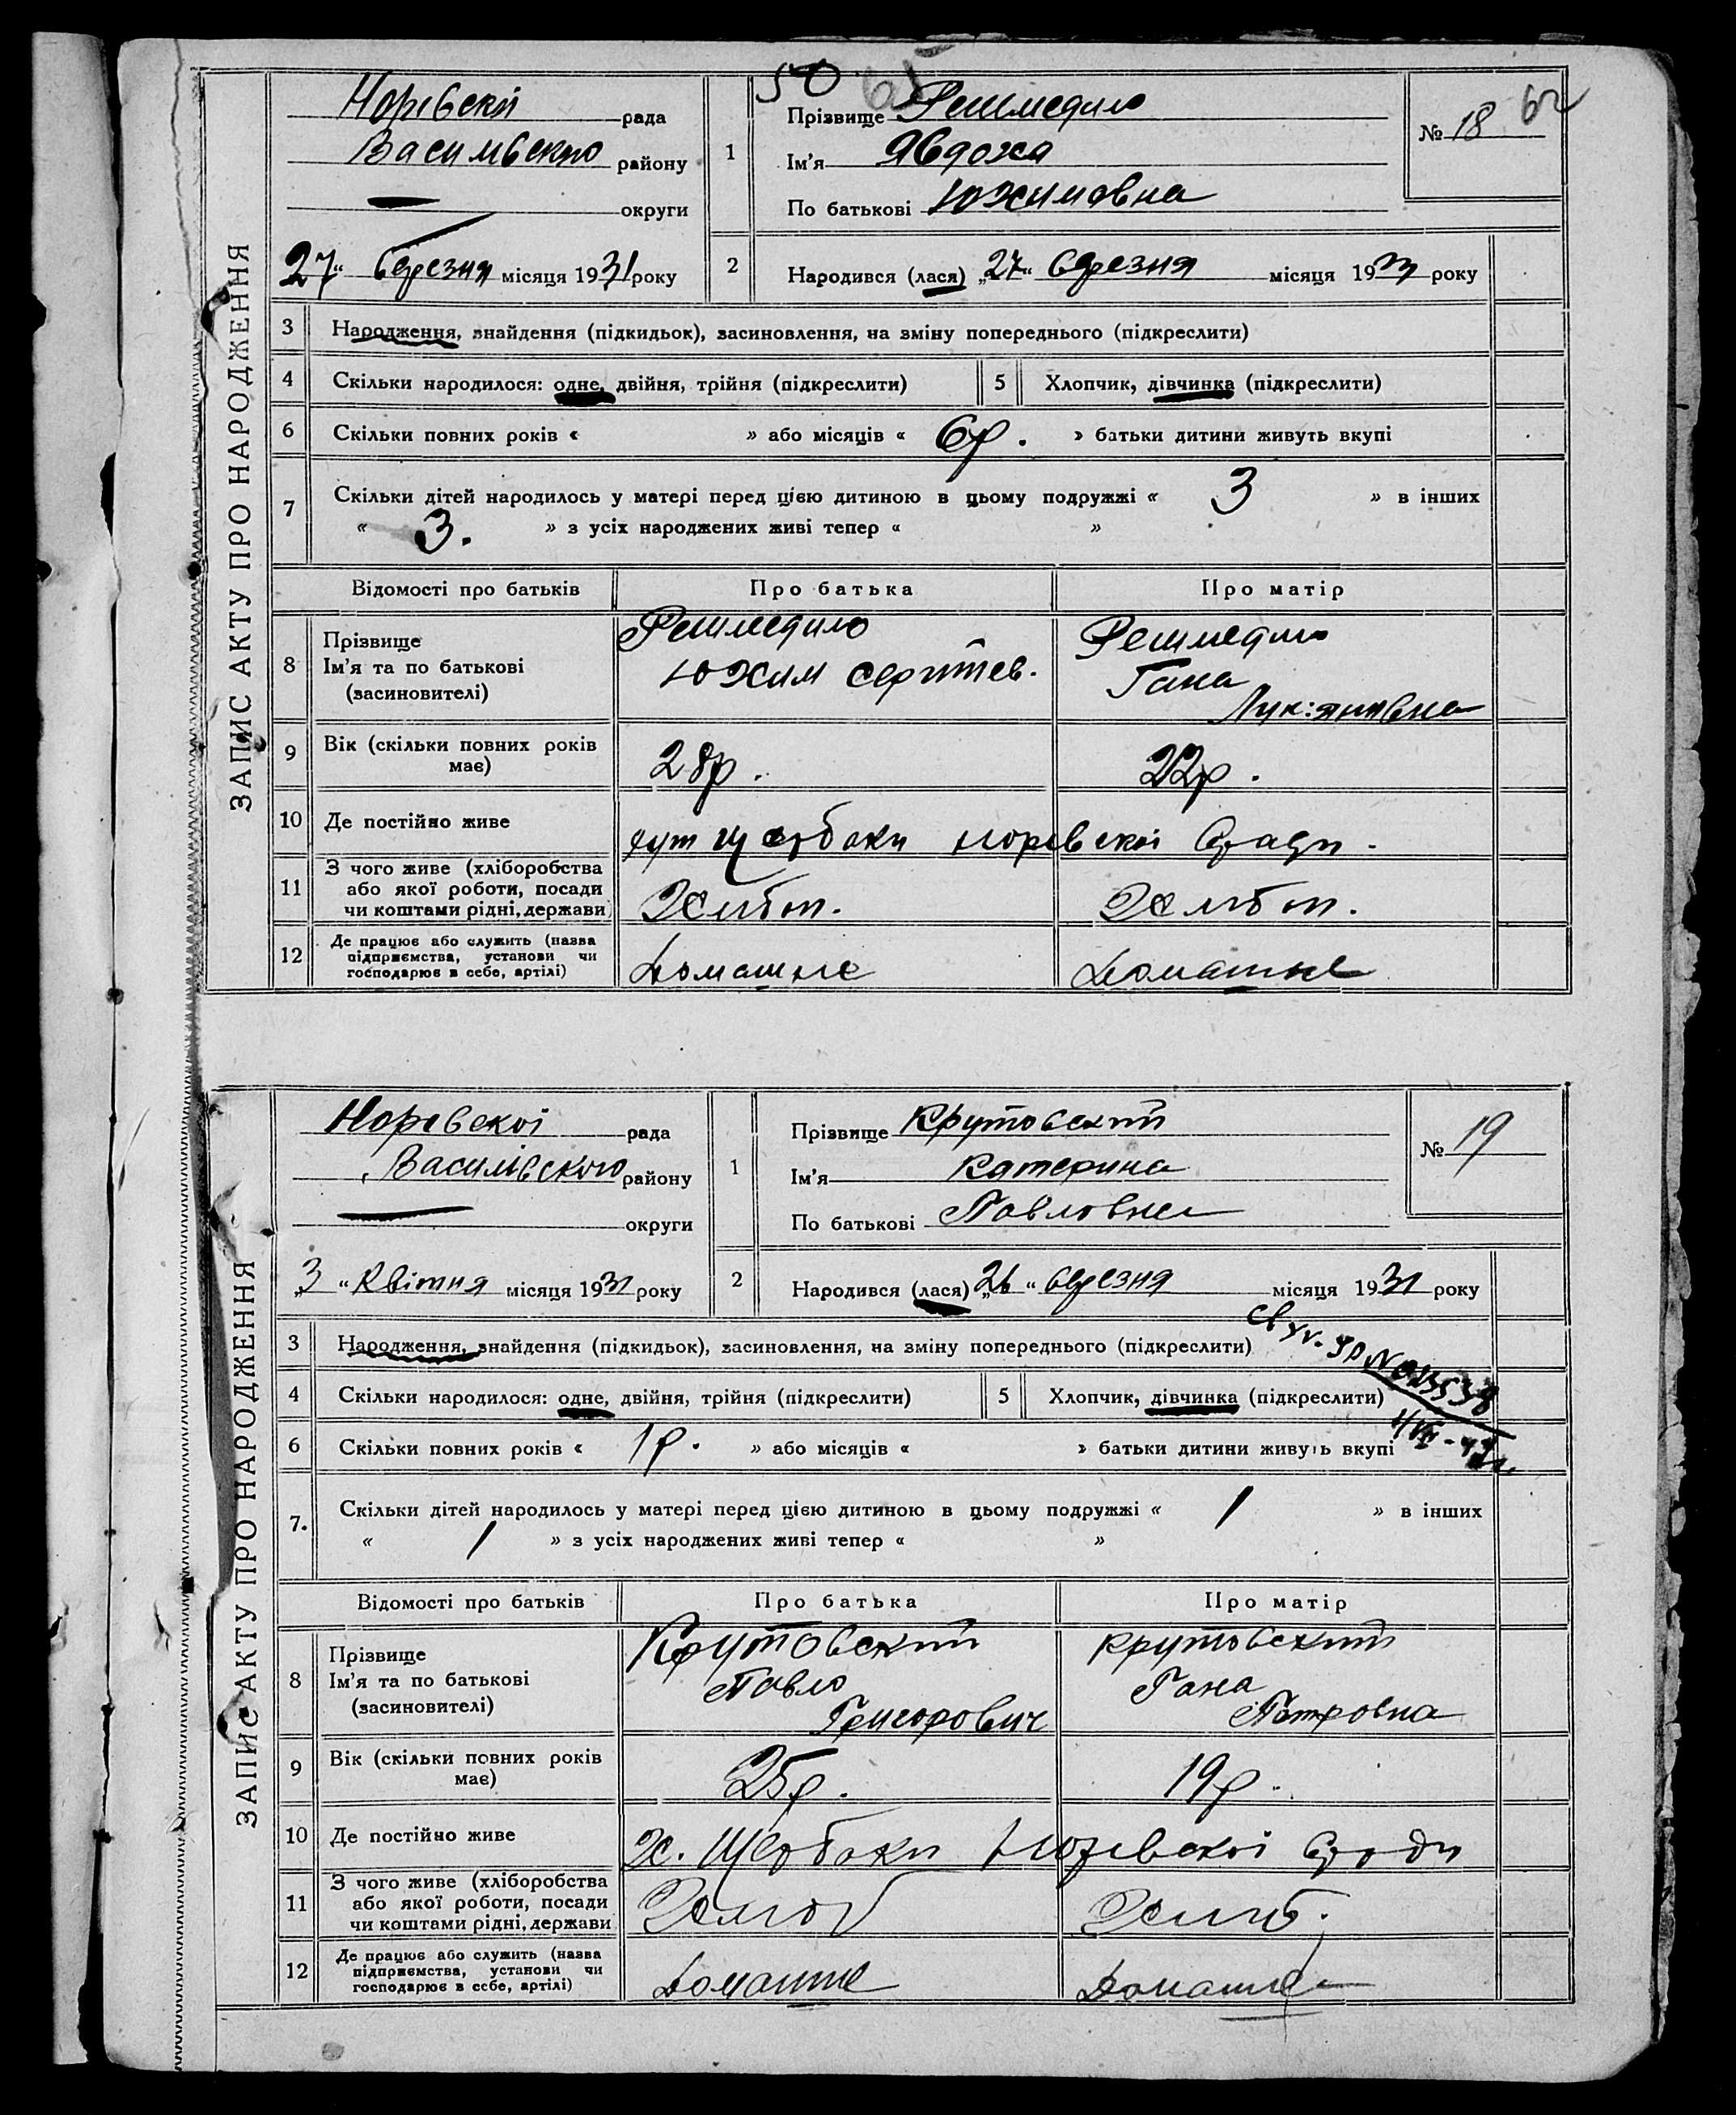 ЗАПИС АКТУ ПРО НАРОДЖЕННЯ
50 62
Норівскій рада
Василівского району
округи
27 " березня місяця 1931 року
1
Прізвище Решмедило
Ім'я Явдоха
По батькові Юхимовна
№ 18
2
Народився (лася) „27" березня місяця 1931 року
3 Народження, знайдення (підкидьок), засиновлення, на зміну попереднього (підкреслити)
4 Скільки народилося: одне, двійня, трійня (підкреслити) 5 Хлопчик, дівчинка (підкреслити)
6 Скільки повних років « » або місяців « 6р. » батьки дитини живуть вкупі
7 Скільки дітей народилось у матері перед цією дитиною в цьому подружжі « 3 » в інших
« 3. » з усіх народжених живі тепер « »
Відомості про батьків Про батька Про матір
8 Прізвище
Ім'я та по батькові
(засиновителі)
Решмедило
Юхим
Решмедило
Гана
9 Вік (скільки повних років має) 28р. 22р.
10 Де постійно живе хут Щербаки Норівскоі Сради.
11 З чого живе (хліборобства
або якої роботи, посади
чи коштами рідні, держави
12 Де працює або служить (назва
підприємства, установи чи
господарює в себе, артілі)
Домашнє Домашнє
ЗАПИС АКТУ ПРО НАРОДЖЕННЯ
Норівскоі рада
Василівского району
округи
„3 " Квітня місяця 1931 року
1
Прізвище Крутовский
Ім'я Катерина
По батькові Павловна
№ 19
2
Народився (лася) „26 " березня місяця 1931 року
3 Народження, знайдення (підкидьок), засиновлення, на зміну попереднього (підкреслити)
4 Скільки народилося: одне, двійня, трійня (підкреслити) 5 Хлопчик, дівчинка (підкреслити)
6 Скільки повних років « 1р. » або місяців « » батьки дитини живуть вкупі
7. Скільки дітей народилось у матері перед цією дитиною в цьому подружжі « 1 » в інших
« 1 » з усіх народжених живі тепер « »
Відомості про батьків Про батька Про матір
8 Прізвище
Ім'я та по батькові
(засиновителі)
Крутовский
Павло
Григорович
Крутовский
Гана
Петровна
9 Вік (скільки повних років має) 25р. 19р.
10 Де постійно живе Х. Щербаки Норівскоі Сради
11 З чого живе (хліборобства
або якої роботи, посади
чи коштами рідні, держави
12 Де працює або служить (назва
підприємства, установи чи
господарює в себе, артілі)
Домашнє Домашнє